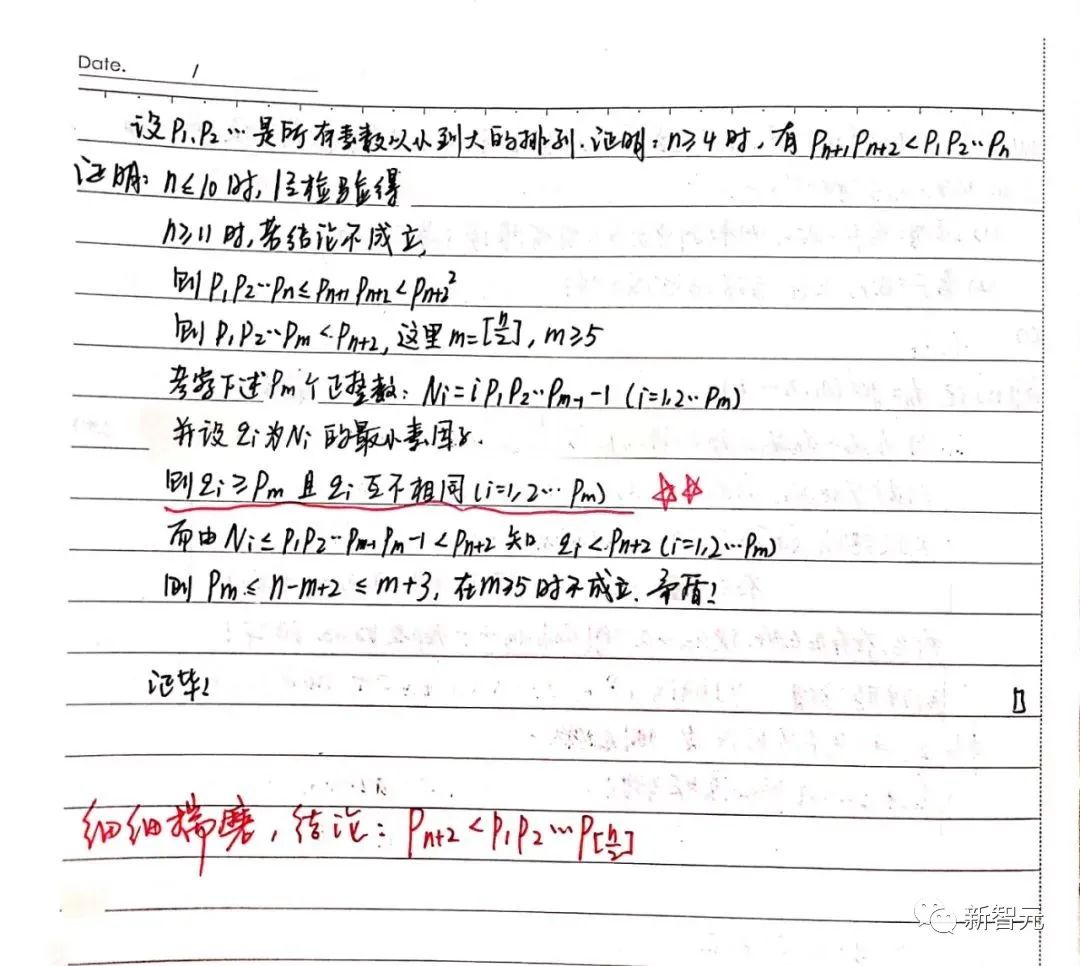 Date. /
设P₁、P₂…是所有素数从小到大的排列.证明:n≥4时,有 Pn+1Pn+2<P₁P₂…Pn
证明:n≤10时,检验显得
n≥11时,若结论不成立,
则P₁P₂…Pn≤Pn+1Pn+2<Pn+2²
则P₁P₂…Pm<Pn+2,这里m=[n/2],m≥5
考察下述Pm个正整数:Ni=iP₁P₂…Pm-1-1(i=1,2…Pm)
并设qi为Ni的最小素因子.
则qi≥Pm且qi互不相同(i=1,2…Pm) ☆☆
而由Ni≤P₁P₂…Pm-1Pm-1<Pn+2知 qi<Pn+2(i=1,2…Pm)
则Pm≤n-m+2≤m+3,在m≥5时不成立.矛盾!
证毕!
细细揣磨,结论:Pn+2<P₁P₂…P[n/2]
新智元